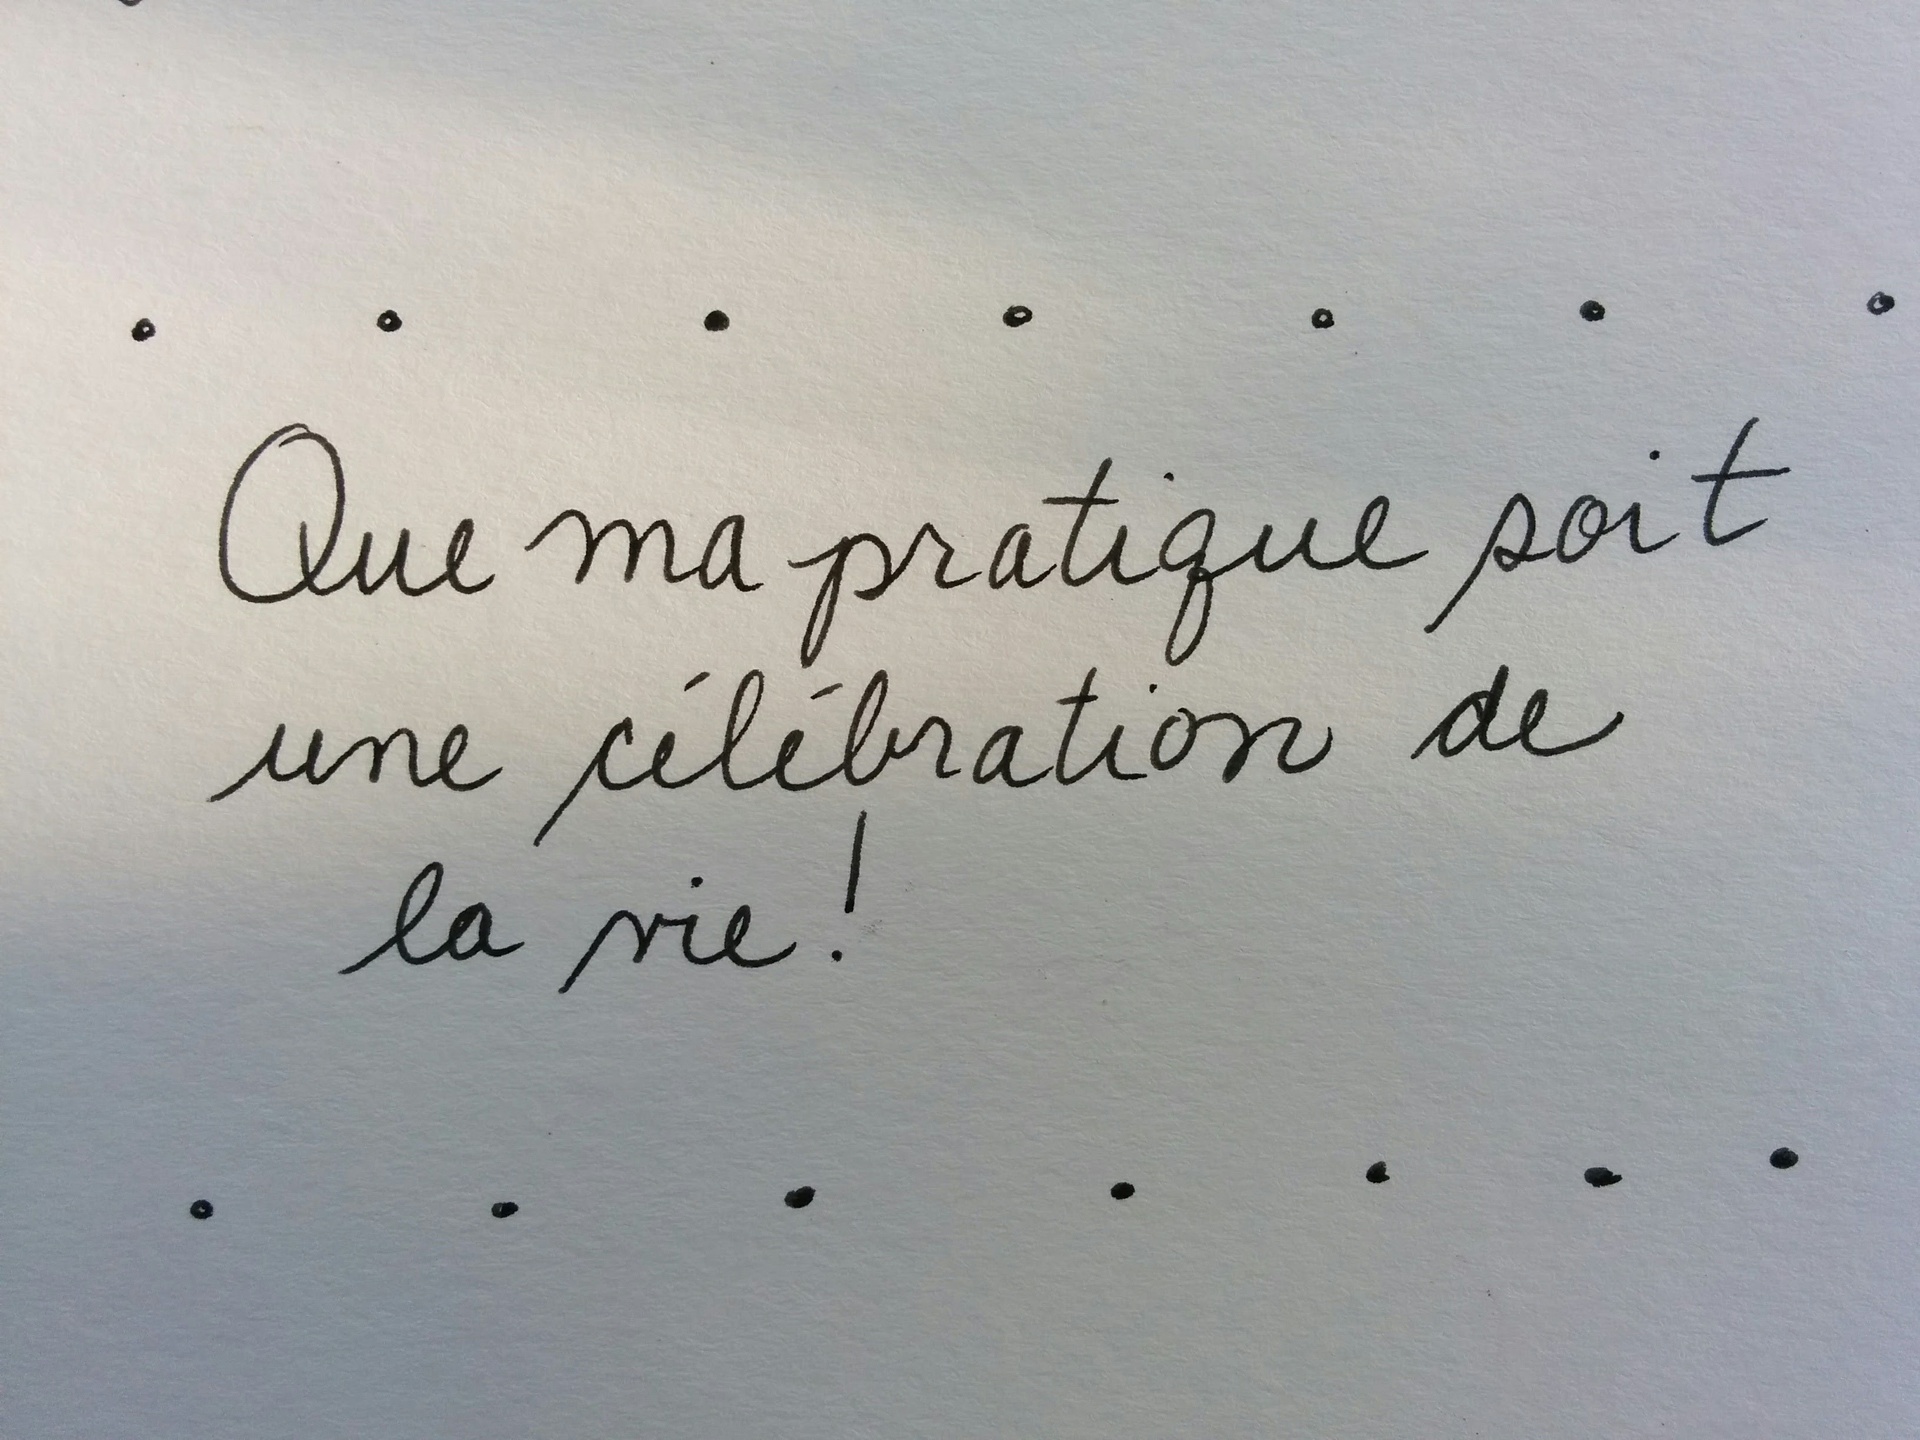 Que ma pratique soit
une célébration de
la vie!